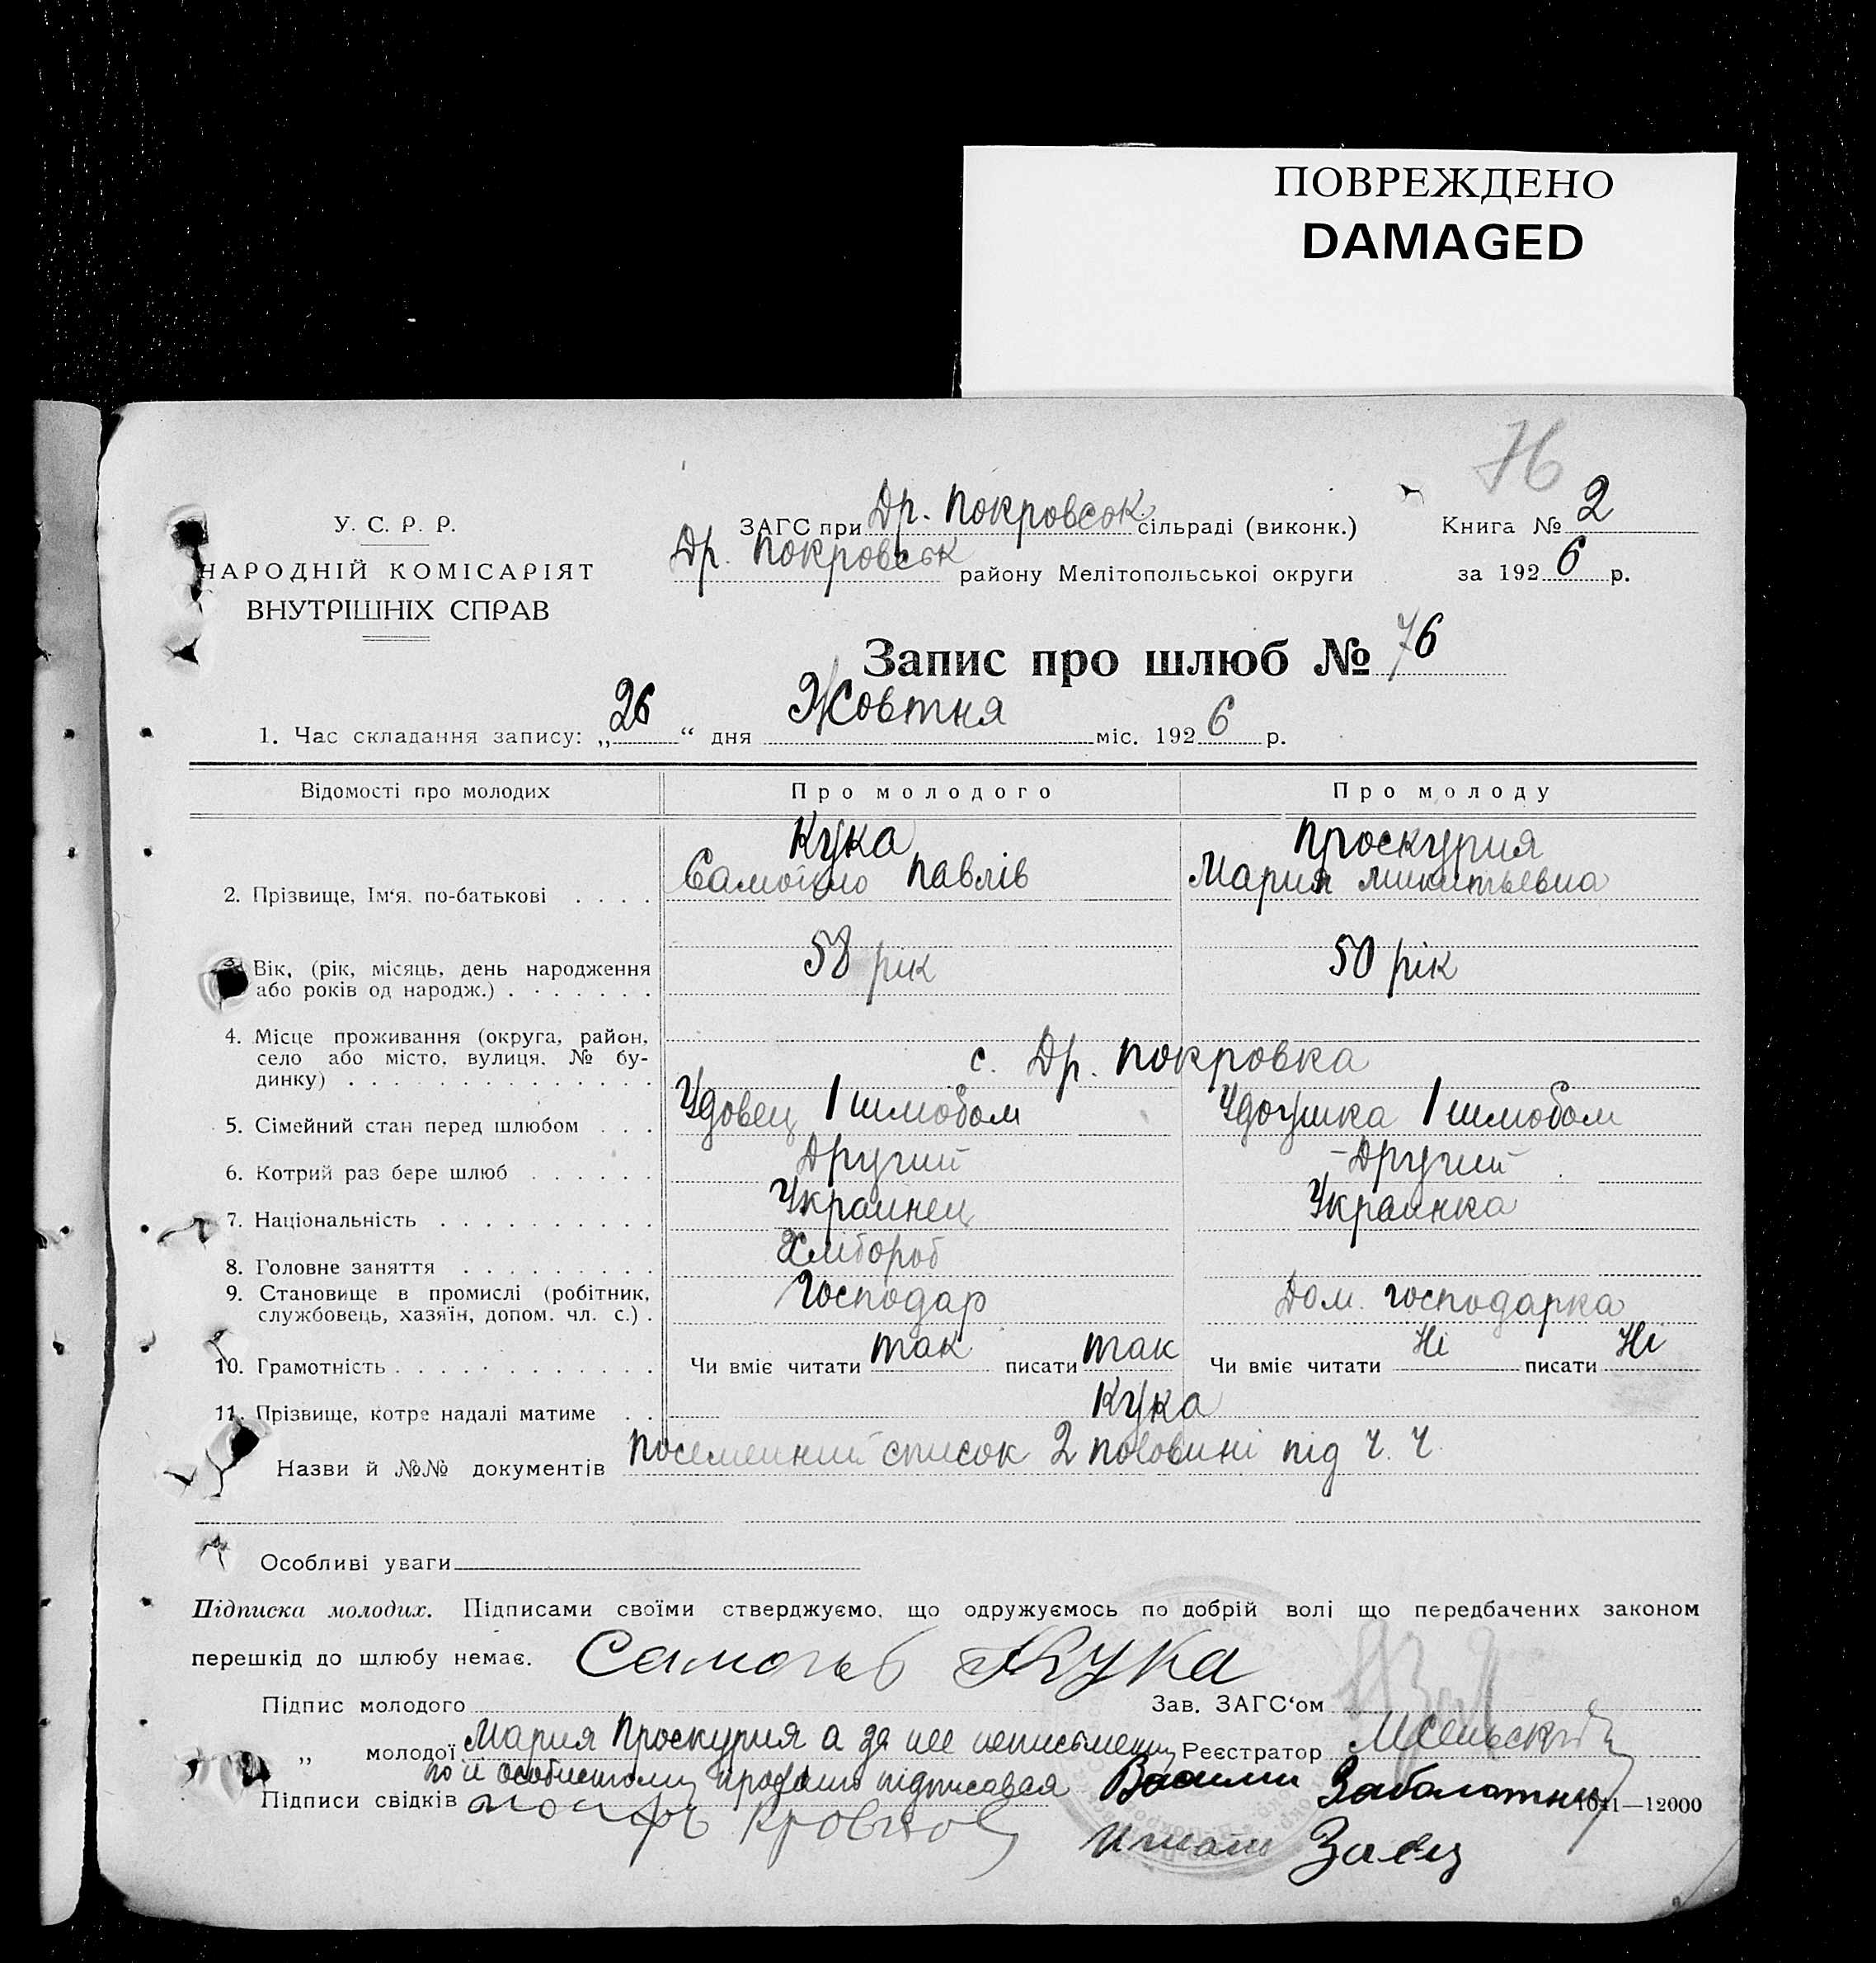 ПОВРЕЖДЕНО
DAMAGED
76
У. С. Р. Р.
НАРОДНІЙ КОМІСАРІЯТ
ВНУТРІШНІХ СПРАВ
ЗАГС при Др. Покровсок сільраді (виконк.)
Др. Покровськ району Мелітопольської округи
Книга № 2
за 1926 р.
Запис про шлюб № 76
1. Час складання запису: „26“ дня Жовтня міс. 1926 р.
Відомості про молодих Про молодого Про молоду
Кука Проскурия
2. Прізвище, Ім'я, по-батькові . . . . Самойло Павлів Мария Микитьевна
3. Вік, (рік, місяць, день народження 58 рік 50 рік
або років од народж.) . . . . . . .
4. Місце проживання (округа, район,
село або місто, вулиця, № бу- с. Др. Покровка
динку) . . . . . . . . . . . . . .
5. Сімейний стан перед шлюбом . . . Удовец 1 шлюбом Удовушка 1 шлюбом
6. Котрий раз бере шлюб . . . . . . Другий - Другий
7. Національність . . . . . . . . . . Украинец Украинка
8. Головне заняття . . . . . . . . . Хлібороб
9. Становище в промислі (робітник, Господар Дом. господарка
службовець, хазяїн, допом. чл. с.) .
10. Грамотність . . . . . . . . . . . . Чи вміє читати так писати так Чи вміє читати Ні писати Ні
11. Прізвище, котре надалі матиме . . Кука
Назви й №№ документів Посемейний список 2 половині під Ч. Ч
Особливі уваги
Підписка молодих. Підписами своїми стверджуємо, що одружуємось по добрій волі що передбачених законом
перешкід до шлюбу немає. Кука
Підпис молодого Зав. ЗАГС‘ом
„ молодої Мария Проскурия а за нее Реєстратор
підписався Василий Заболотный
Підписи свідків 1041—12000
Заец